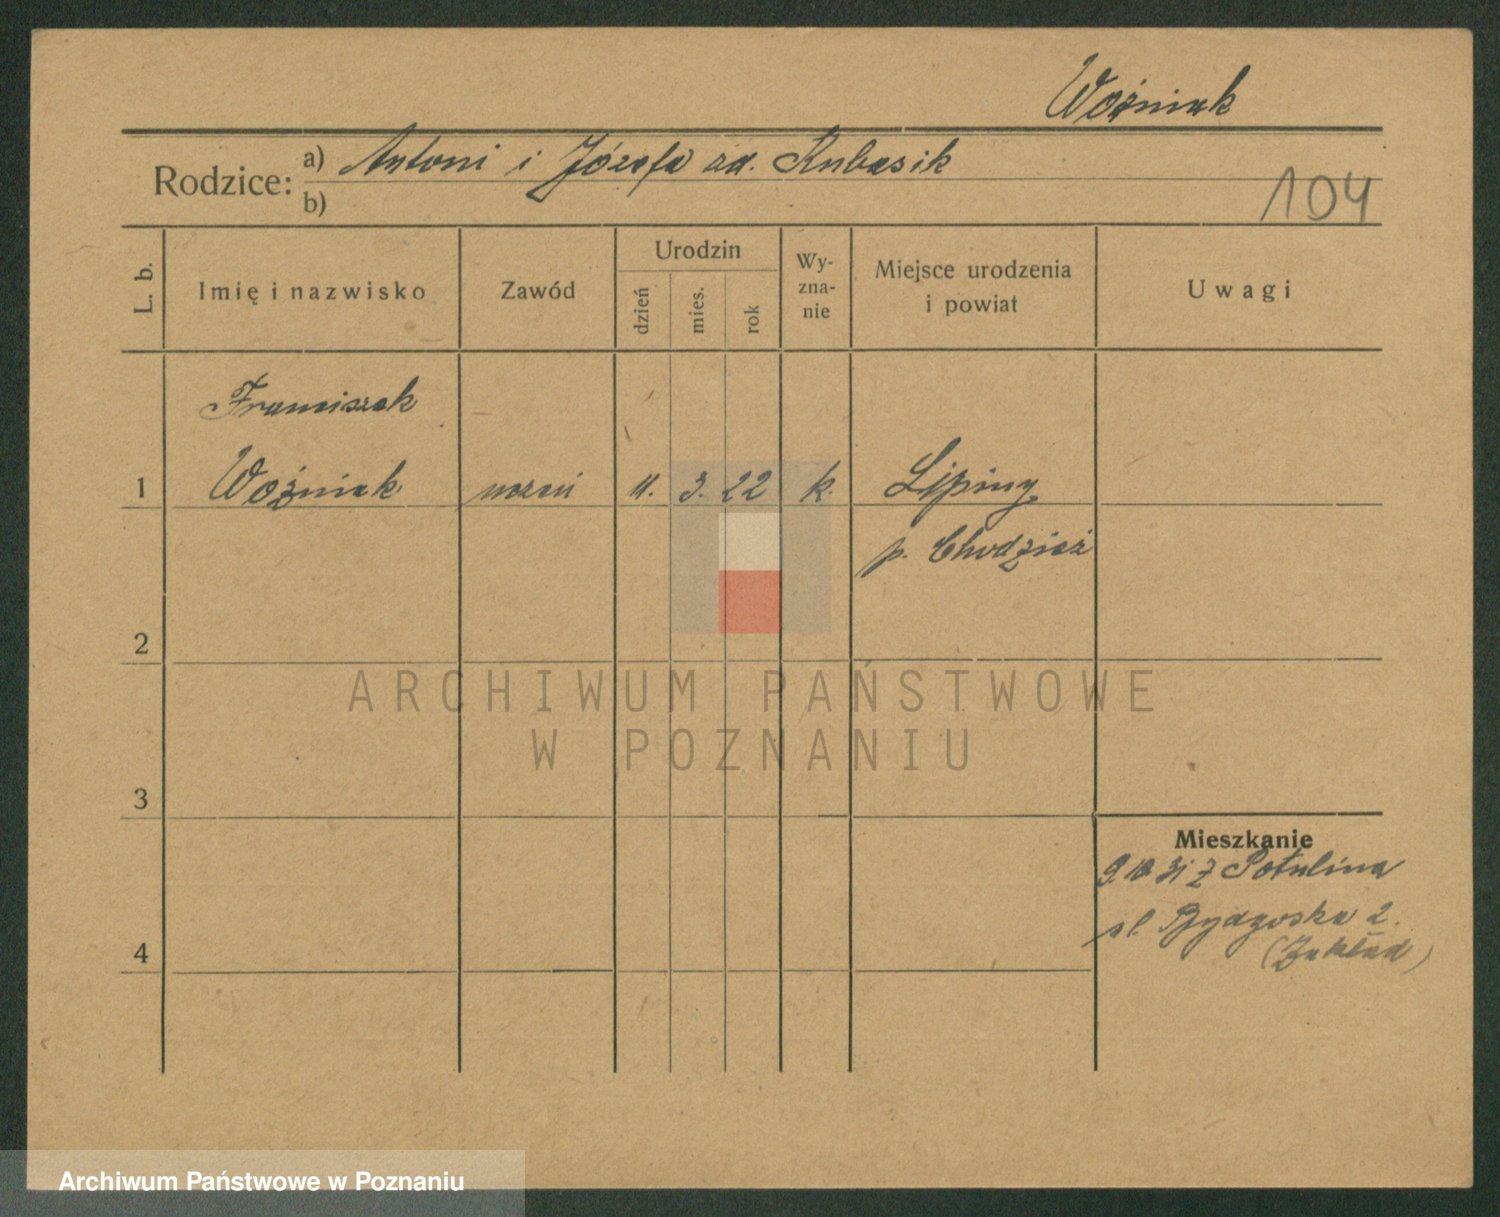 Woźniak
Rodzice:
a) Antoni i Józefa zd. Kubasik
b)
104
L. b.
Imię i nazwisko
Zawód
Urodzin
dzień
mies.
rok
Wy-
zna-
nie
Miejsce urodzenia
i powiat
Uwagi
Franciszek
1 Woźniak uczeń 11. 3. 22 k. Lipiny
p. Chodzież
2
3
4
ARCHIWUM PAŃSTWOWE
W POZNANIU
Mieszkanie
9.10 31 z Potulina
ul. Bydgoska 2.
(Zakład)
Archiwum Państwowe w Poznaniu